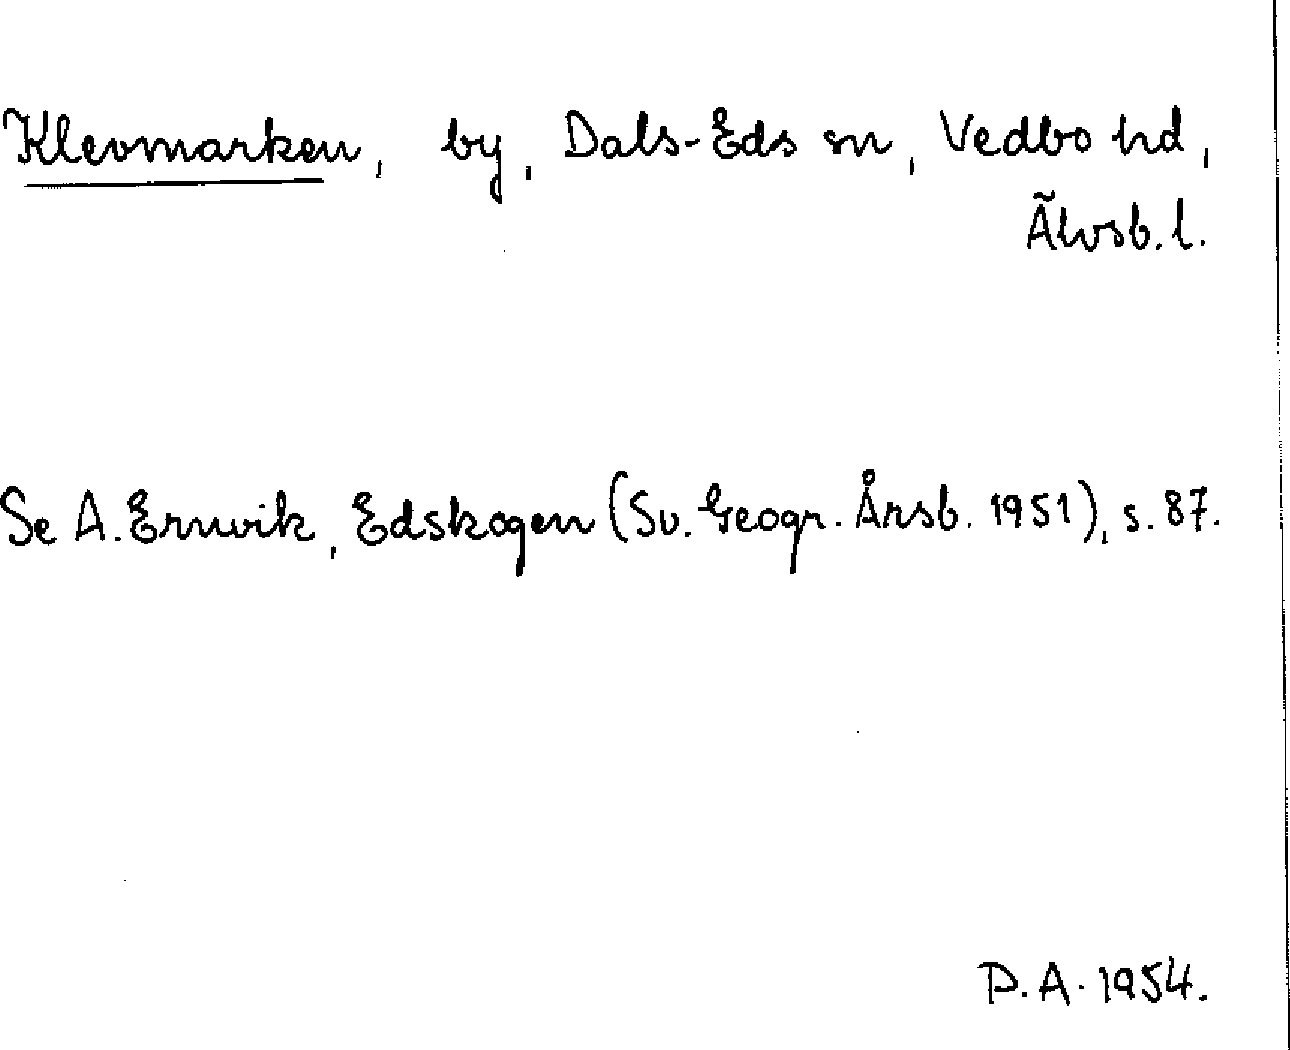 Klevmarken, by, Dals-Eds sn, Vedbo hd,
Älvsb. l.
Se A. Ernvik, Edskogen (Sv. Geogr. Årsb. 1951), s. 87.
P. A. 1954.